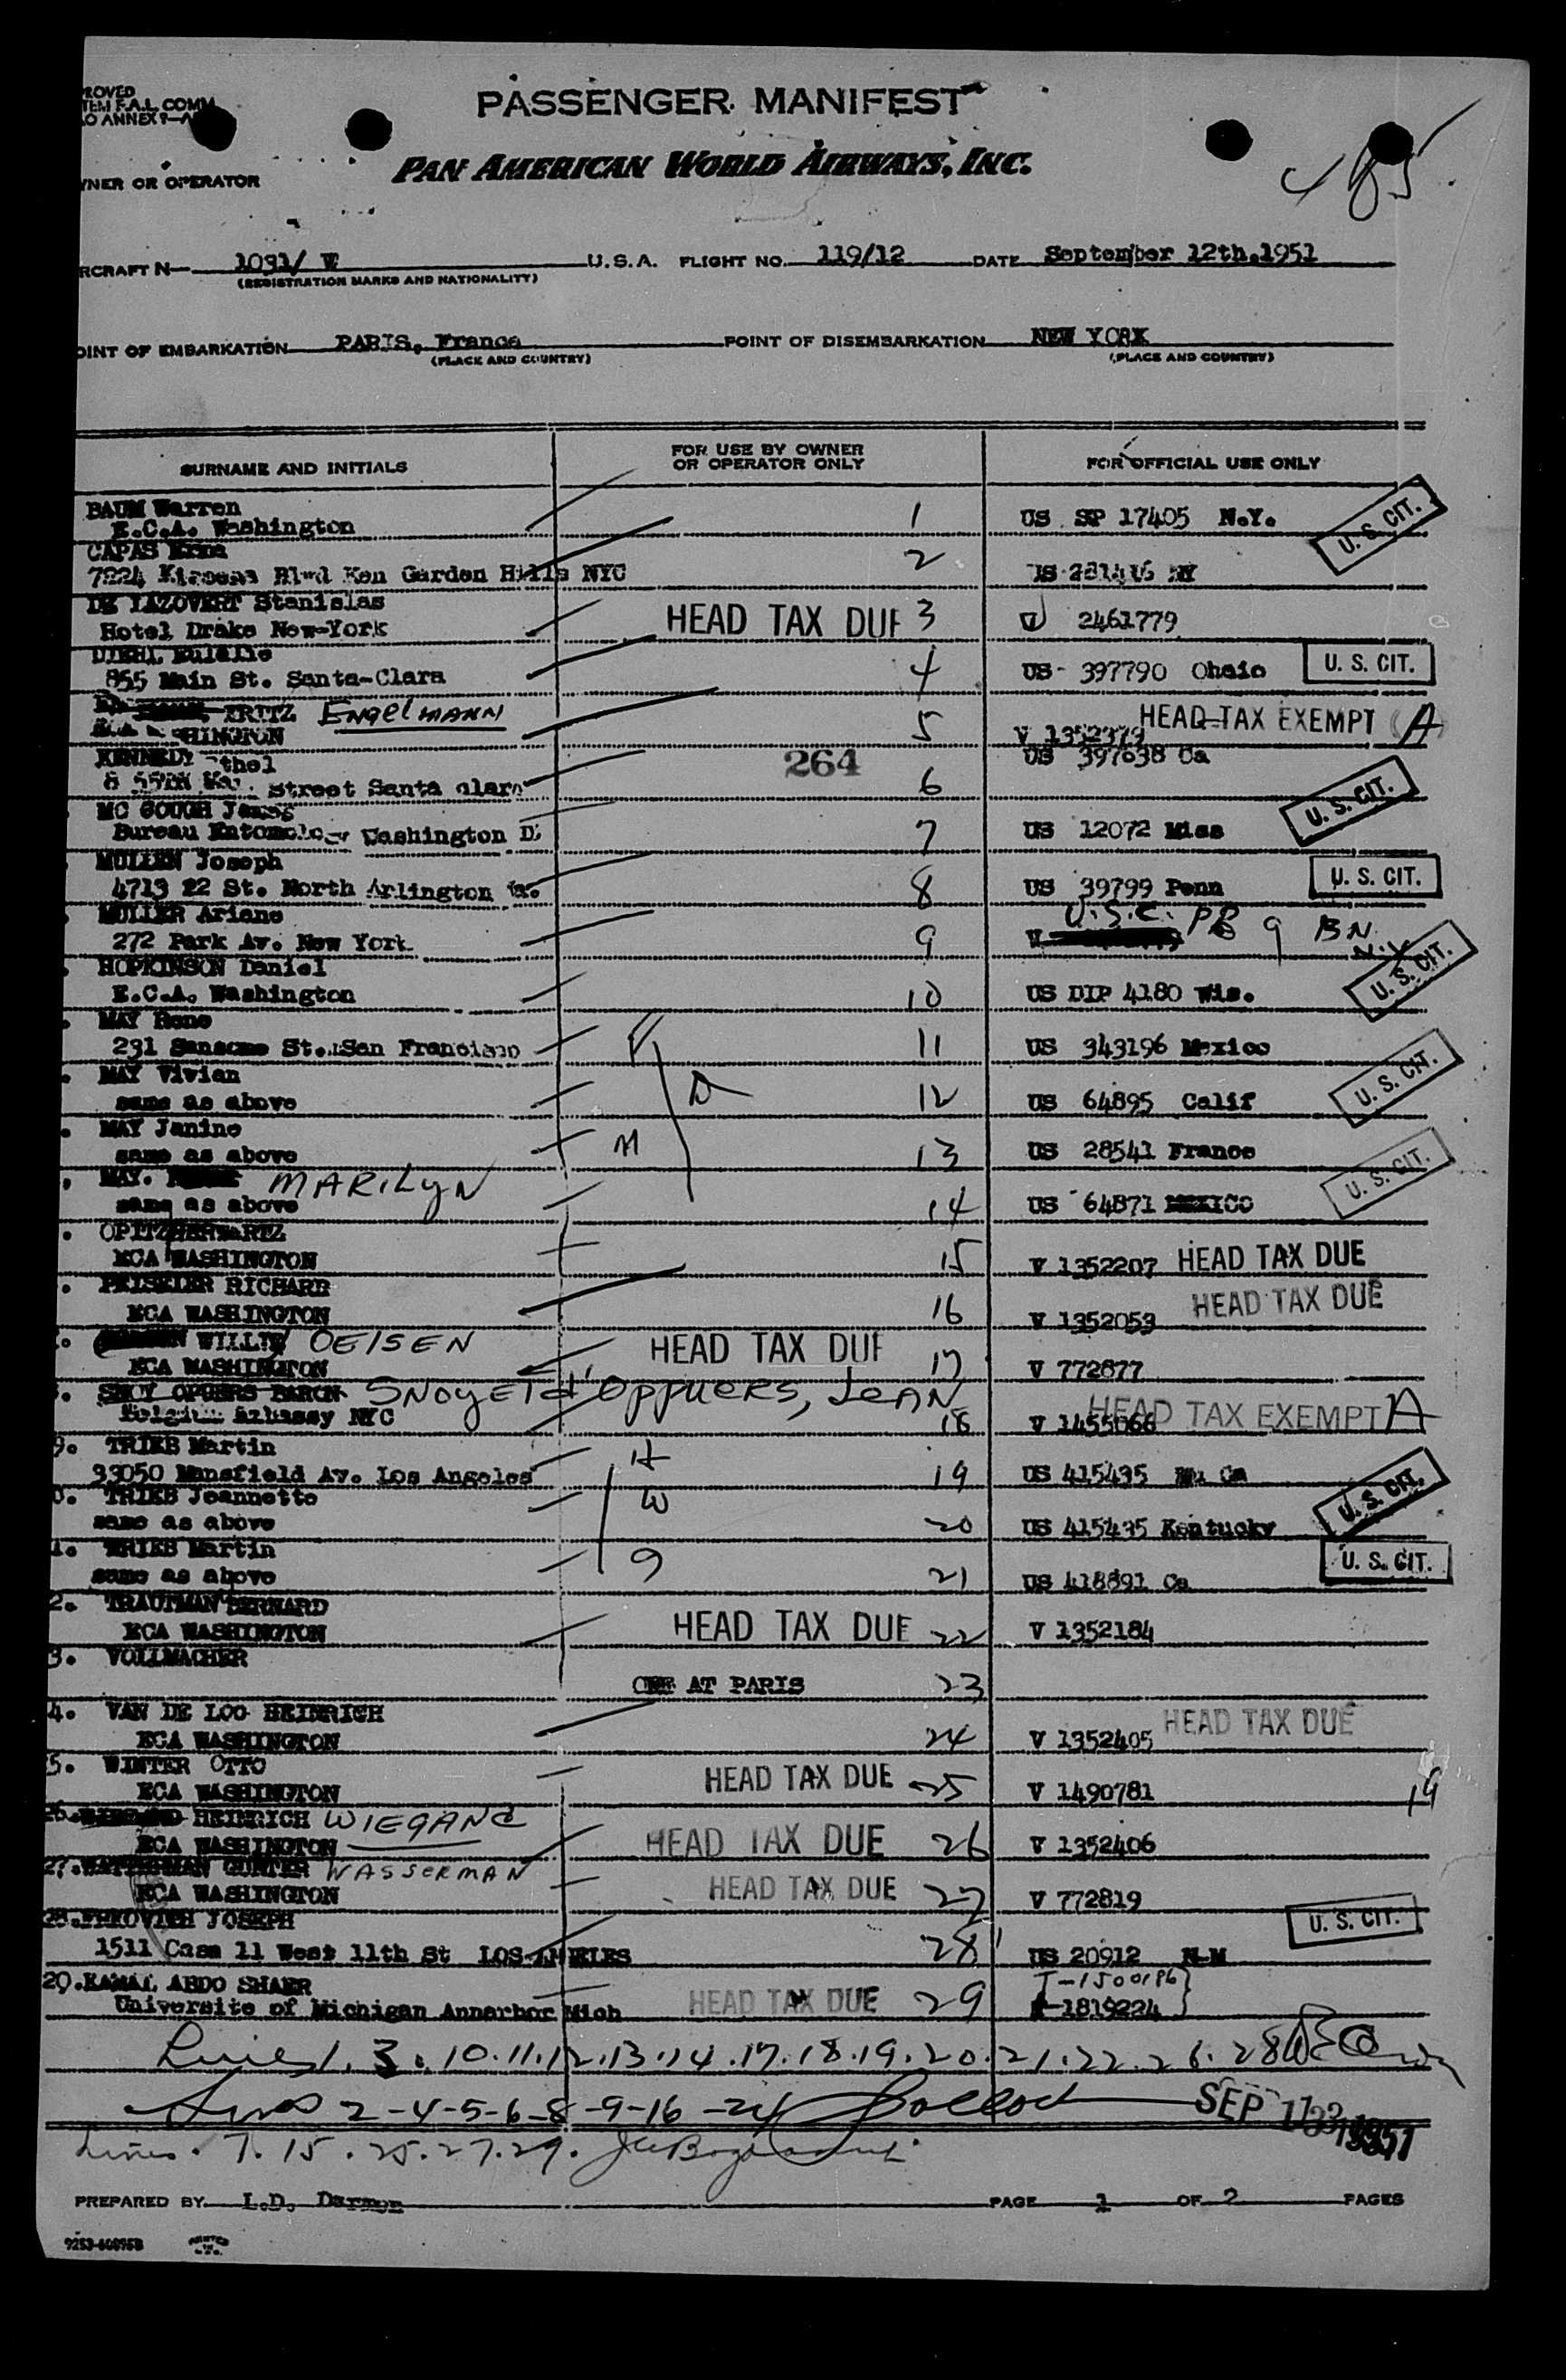 PROVED
TEM F.A.L. COMM
O ANNEX 9-A
PASSENGER MANIFEST
PAN AMERICAN WORLD AIRWAYS, INC.
485
NER OR OPERATOR
RCRAFT N— 1031/ V U.S.A. FLIGHT NO. 119/12 DATE September 12th.1951
(REGISTRATION MARKS AND NATIONALITY)
OINT OF EMBARKATION PARIS, France POINT OF DISEMBARKATION NEW YORK
(PLACE AND COUNTRY) (PLACE AND COUNTRY)
SURNAME AND INITIALS FOR USE BY OWNER OR OPERATOR ONLY FOR OFFICIAL USE ONLY
BAUM Warren
E.C.A. Washington 1 US SP 17405 N.Y. U. S. CIT.
CAPAS
7224 Blvd Ken Garden Hills NYC 2 US
DE LAZOVERT Stanislas
Hotel Drake New-York HEAD TAX DUE 3 V 2461779
DIEHL Eulalie
855 Main St. Santa-Clara 4 US- 397790 Ohaio U. S. CIT.
FRITZ ENGELMANN
HINGTON 5 V 1352379 HEAD TAX EXEMPT A
KENNEDY thel 264 US 397638 Ca
street Santa clara 6
MC GOUGH James U. S. CIT.
Bureau Entomology Washington D. 7 US 12072 Miss
MULLEN Joseph
4713 22 St. North Arlington 8 US 39799 Penn U. S. CIT.
MULLER Ariane U.S.C. PB 9 BN.
272 Park Av. New York. 9 V N.Y.
HOPKINSON Daniel U. S. CIT.
E.C.A. Washington 10 US DIP 4180 Wis.
MAY Rene
231 Sansome St. San Francisco 11 US 343196 Mexico
MAY Vivian D U. S. CIT.
same as above 12 US 64895 Calif
MAY Janine
same as above M 13 US 28541 France
MAY. MARILYN U. S. CIT.
same as above 14 US 64871 MEXICO
OPITZ
ECA WASHINGTON 15 V 1352207 HEAD TAX DUE
PEISELER RICHARD
ECA WASHINGTON 16 V 1352053 HEAD TAX DUE
WILLI OEISEN
ECA WASHINGTON HEAD TAX DUE 17 V 772877
SNOY OPUERS BARON SNOY ET d'OPPUERS, JEAN
Belgium Embassy NYC 18 V 1455066 HEAD TAX EXEMPT A
9. TRIEB Martin H
33050 Mansfield Av. Los Angeles 19 US 415435 Ca
0. TRIEB Jeannette W U. S. CIT.
same as above 20 US 415435 Kentucky
1. TRIEB Martin
same as above 9 21 US 418891 Ca U. S. CIT.
2. TRAUTMAN BERNARD
ECA WASHINGTON HEAD TAX DUE 22 V 1352184
3. VOLLMACHER
AT PARIS 23
4. VAN DE LOO HEINRICH
ECA WASHINGTON 24 V 1352405 HEAD TAX DUE
5. WINTER OTTO
ECA WASHINGTON HEAD TAX DUE 25 V 1490781 19
26. HEINRICH WIEGAND
ECA WASHINGTON HEAD TAX DUE 26 V 1352406
27. GUNTER WASSERMAN
ECA WASHINGTON HEAD TAX DUE 27 V 772819
28. JOSEPH
1511 Casa 11 West 11th St LOS-ANGELES 28 US 20912 N-M U. S. CIT.
29. KAMAL ABDO SHAER T-1500186
Universite of Michigan Annarbor Mich HEAD TAX DUE 29 1819224
Lines 1. 3. 10.11.12.13.14.17.18.19.20.21.22.26.28
Lines 2-4-5-6-8-9-16-24 SEP 1951
Lines. 7. 15. 25. 27. 29.
PREPARED BY L.D. PAGE 1 OF 2 PAGES